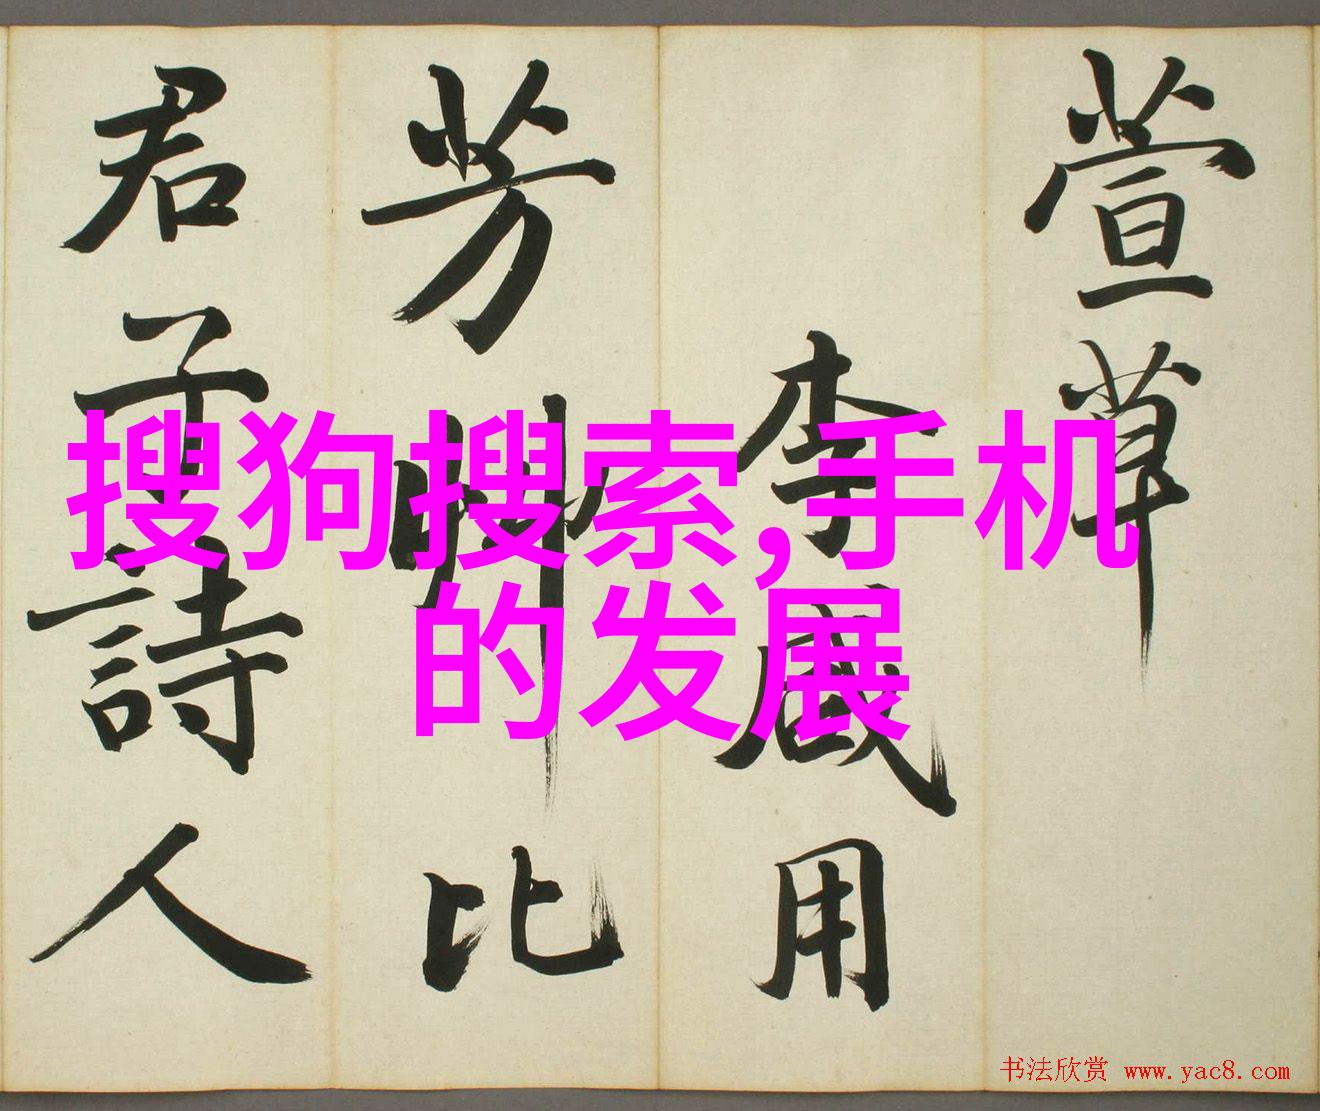 萱草
李咸用
芳草比
君子詩人
搜狗搜索,手机
的发展
书法欣赏 www.yac8.com